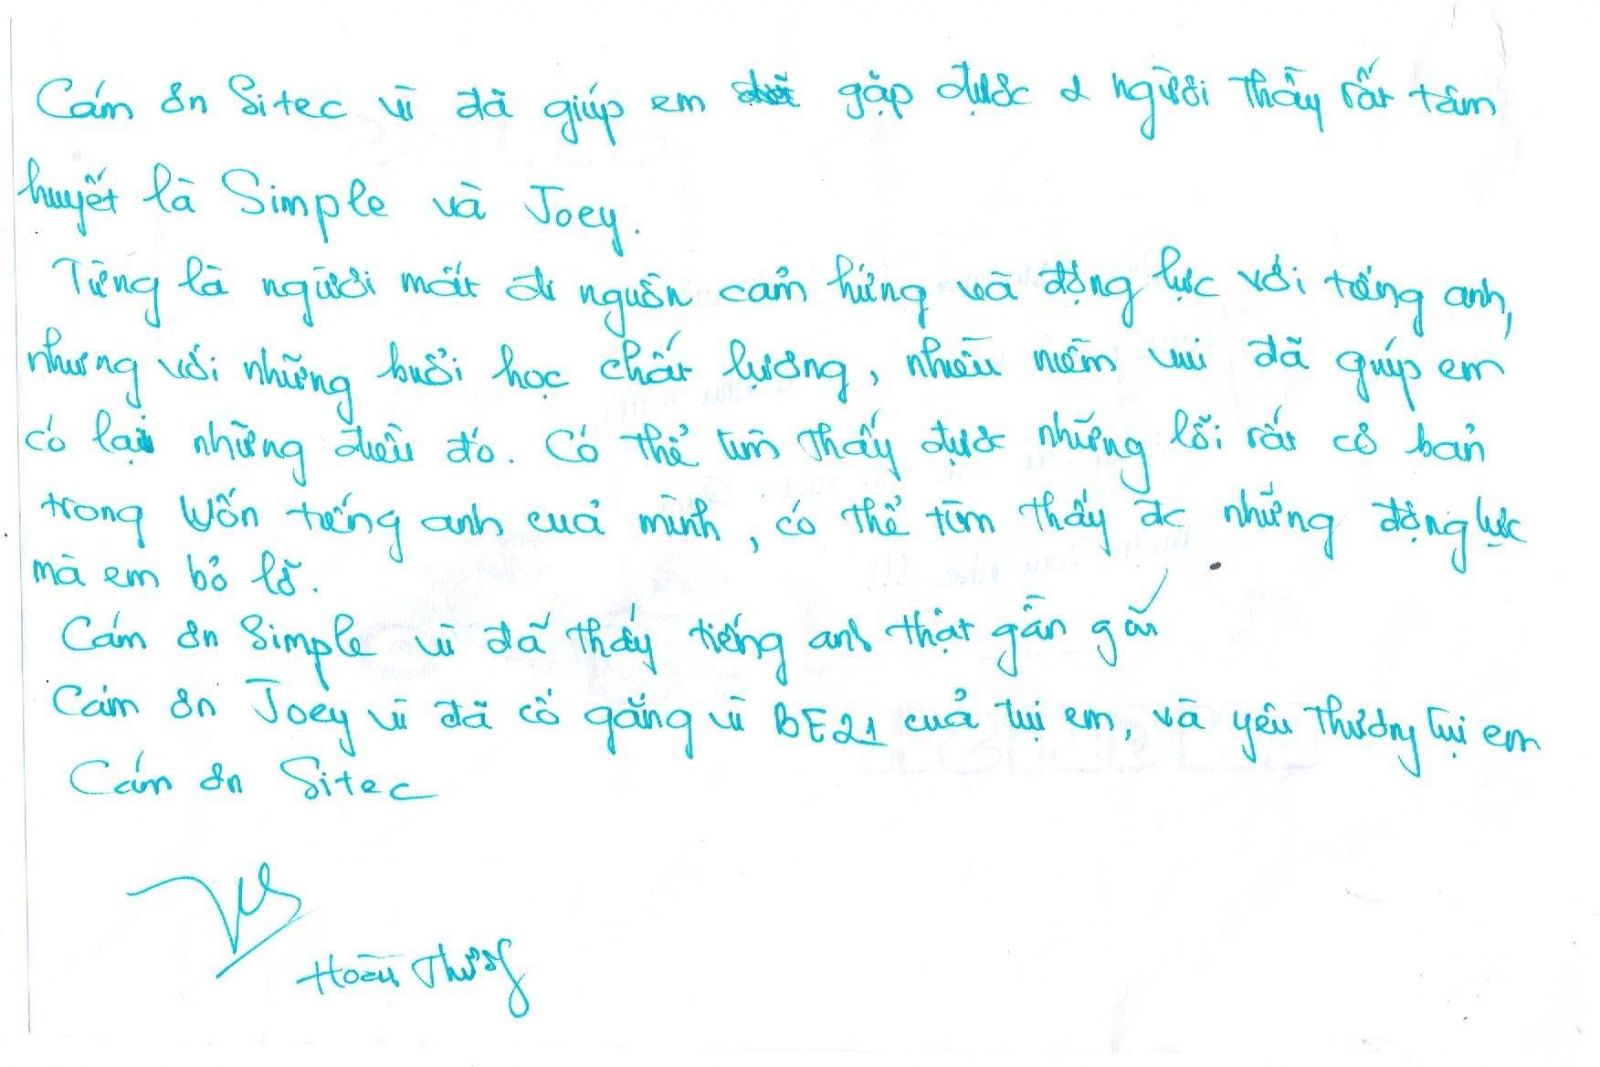 Cám ơn Sitec vì đã giúp em gặp được 2 người thầy rất tâm
huyết là Simple và Joey.
Từng là người mất đi nguồn cảm hứng và động lực với tiếng anh,
nhưng với những buổi học chất lượng, nhiều niềm vui đã giúp em
có lại những điều đó. Có thể tìm thấy được những lỗi rất cơ bản
trong vốn tiếng anh của mình, có thể tìm thấy đc những động lực
mà em bỏ lỡ.
Cám ơn Simple vì đã thấy tiếng anh thật gần gũi
Cám ơn Joey vì đã cố gắng vì BE21 của tụi em, và yêu thương tụi em
Cám ơn Sitec
Hoài Thương